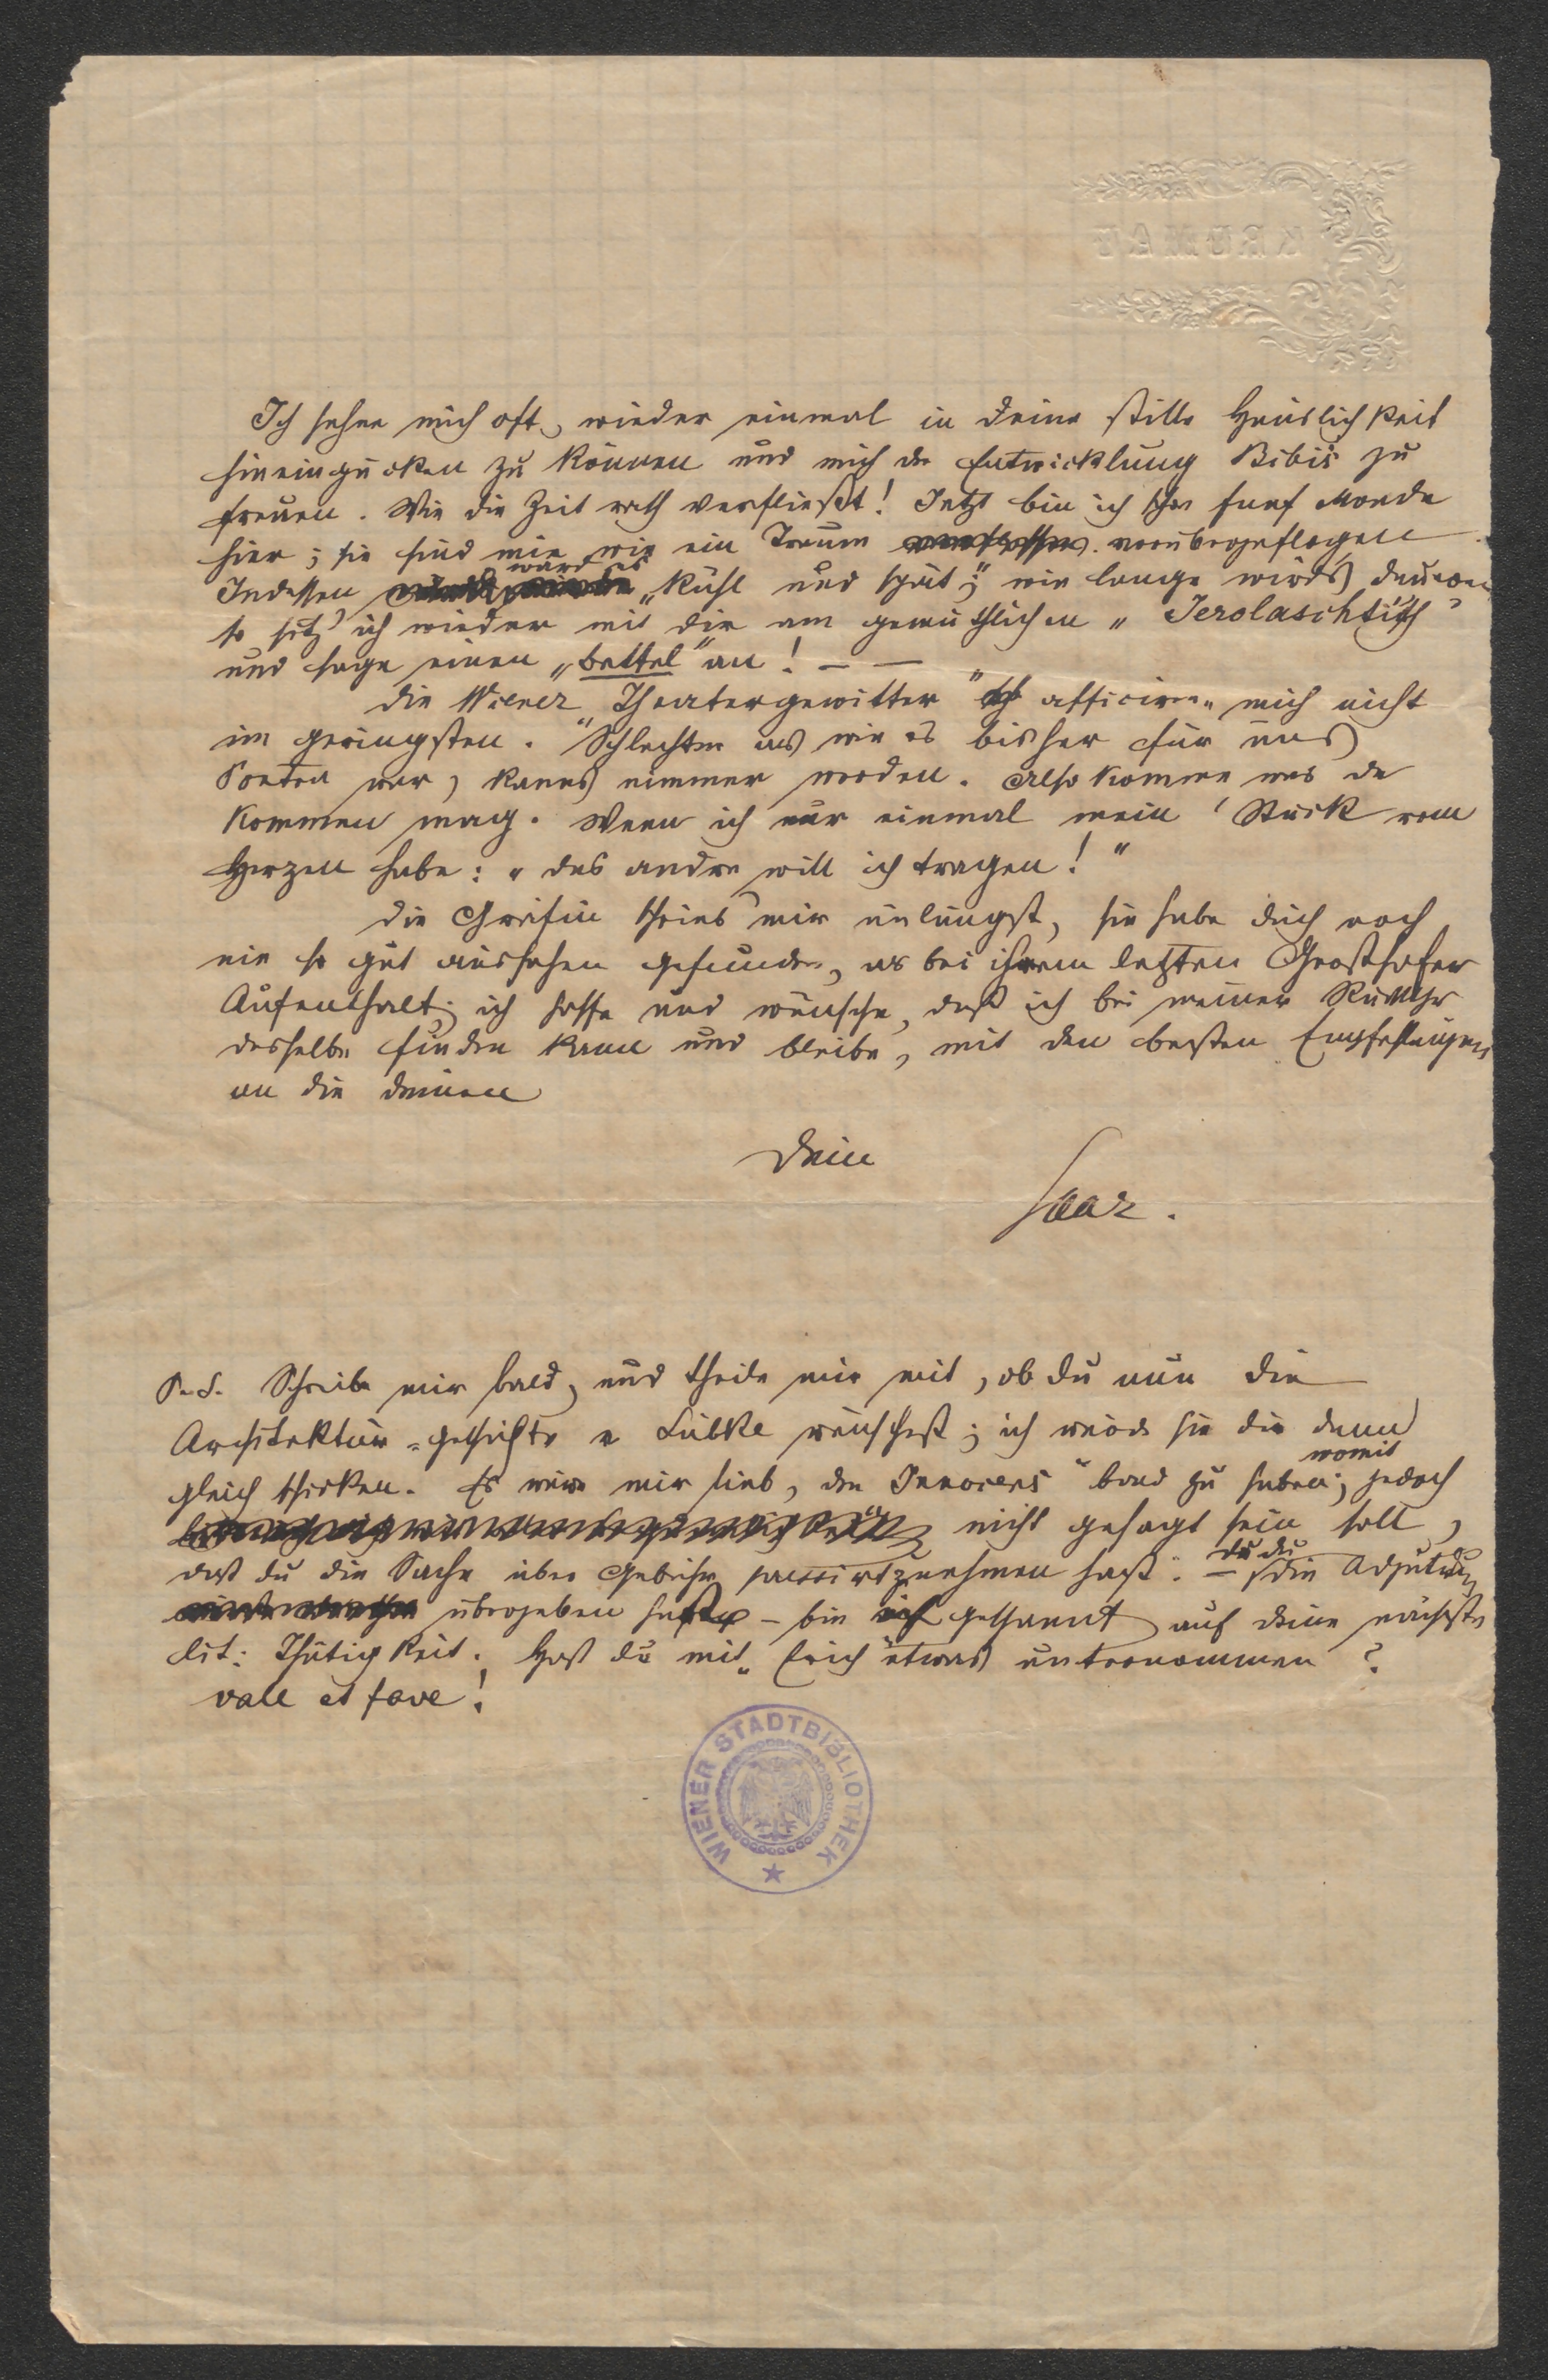 KRUMAU
Ich sehne mich oft, wieder einmal in Deine stille Häuslichkeit
hineingucken zu können und mich der Entwicklung Bibis zu
freuen. Wie die Zeit rasch verfließt! Jetzt bin ich schon fünf Monde
hier; sie sind mir wie ein Traum vorübergeflogen.
Indessen ward es „kühl und spät;“ wie lange wirds dauern
so sitz' ich wieder mit Dir am gemüthlichen „Jerolaschtisch“
und sage einen „Bettel“ an! — —
Die Wiener „Theatergewitter“ afficiren mich nicht
im geringsten. Schlechter als wie es bisher für uns
Poeten war, kanns nimmer werden. Also komme was da
kommen mag. Wenn ich nur einmal mein Stück vom
Herzen habe: „das andre will ich tragen!“
Die Gräfin schrieb mir unlängst, sie habe Dich noch
nie so gut aussehen gefunden, als bei ihrem letzten
Aufenthalt; ich hoffe und wünsche, daß ich bei meiner Rückkehr
dasselbe finden kann und bleibe, mit den besten Empfehlungen
an die Deinen
Dein
Saar.
P. S. Schreibe mir bald, und theile mir mit, ob Du nun die
Architektur-geschichte v Lübke wünschest; ich würde sie Dir dann
gleich schicken. Es wäre mir lieb, den „Innocens“ bald zu haben; womit jedoch
nicht gesagt sein soll,
daß Du die Sache über Gebühr zu nehmen hast. — da Du die
übergeben hast — bin ich gespannt auf Deine nächste
lit: Thätigkeit. Hast Du mit „Erich“ etwas unternommen?
vale et fave!
WIENER STADTBIBLIOTHEK